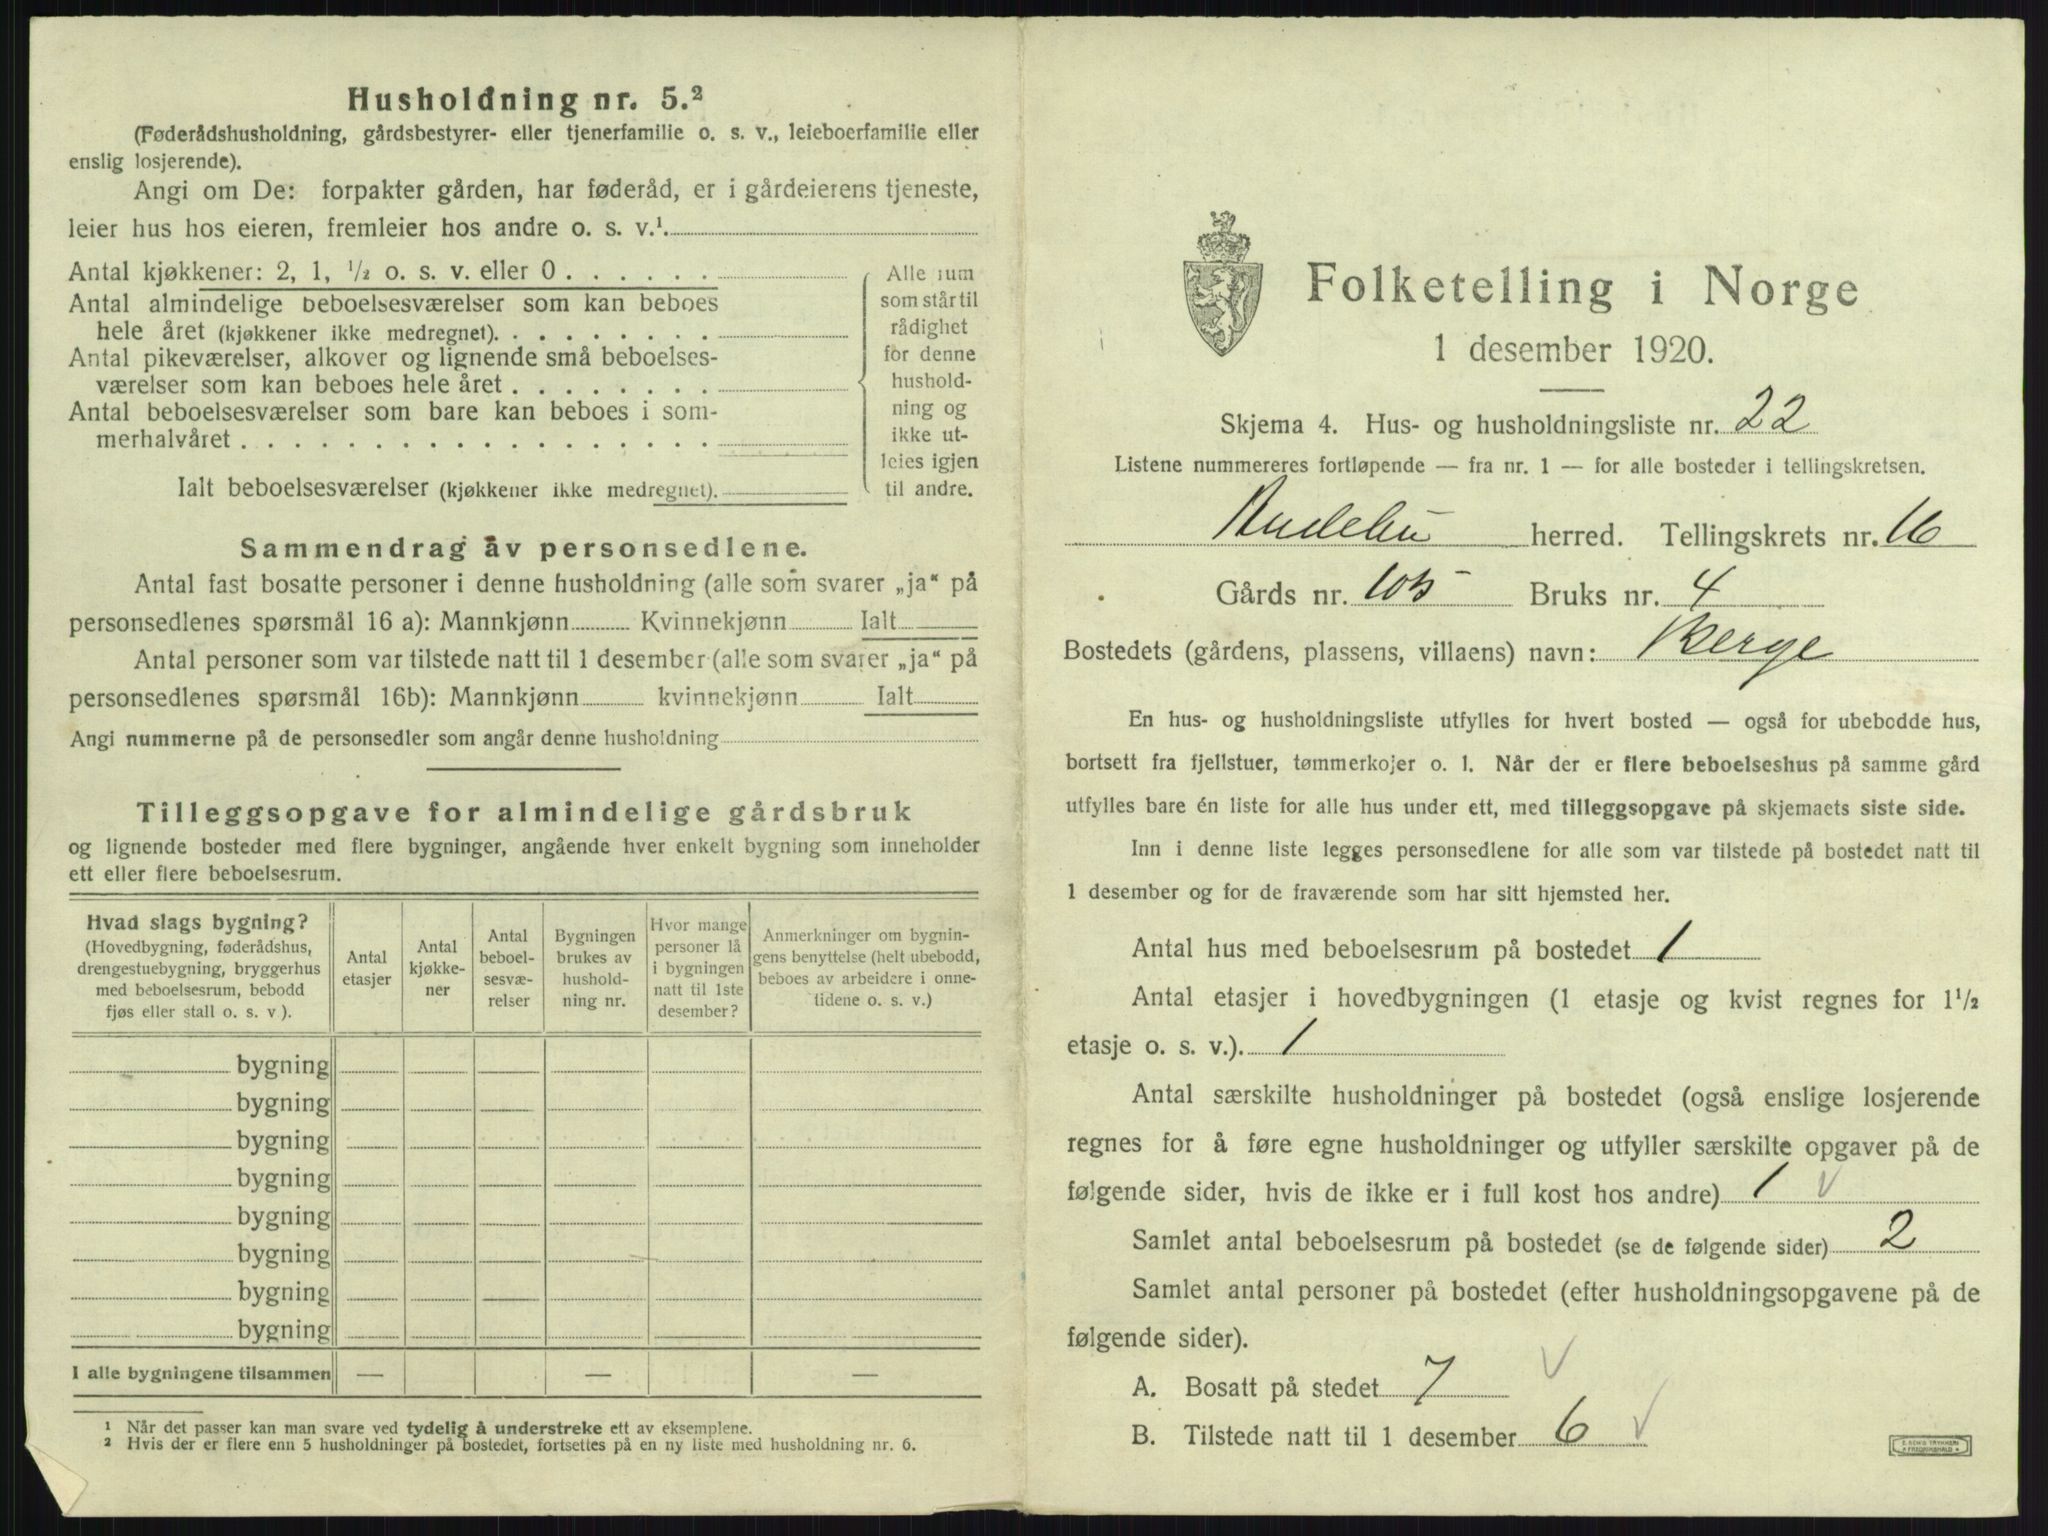 Husholdning nr. 5.²
(Føderådshusholdning, gårdsbestyrer- eller tjenerfamilie o. s. v., leieboerfamilie eller
enslig losjerende).
Angi om De: forpakter gården, har føderåd, er i gårdeierens tjeneste,
leier hus hos eieren, fremleier hos andre o. s. v.¹
Antal kjøkkener: 2, 1, ½ o. s. v. eller 0 . . . . . .
Antal almindelige beboelsesværelser som kan beboes
hele året (kjøkkener ikke medregnet). . . . . . . . .
Antal pikeværelser, alkover og lignende små beboelses-
værelser som kan beboes hele året . . . . . . . .
Antal beboelsesværelser som bare kan beboes i som-
merhalvåret . . . . . . . . . . . . . . . . . .
Ialt beboelsesværelser (kjøkkener ikke medregnet).
Alle rum
som står til
rådighet
for denne
hushold-
ning og
ikke ut-
leies igjen
til andre.
Sammendrag av personsedlene.
Antal fast bosatte personer i denne husholdning (alle som svarer „ja“ på
personsedlenes spørsmål 16 a): Mannkjønn Kvinnekjønn Ialt
Antal personer som var tilstede natt til 1 desember (alle som svarer „ja“ på
personsedlenes spørsmål 16b): Mannkjønn kvinnekjønn Ialt
Angi nummerne på de personsedler som angår denne husholdning
Tilleggsopgave for almindelige gårdsbruk
og lignende bosteder med flere bygninger, angående hver enkelt bygning som inneholder
ett eller flere beboelsesrum.
Hvad slags bygning?
(Hovedbygning, føderådshus,
drengestuebygning, bryggerhus
med beboelsesrum, bebodd
fjøs eller stall o. s. v ).
Antal
etasjer
Antal
kjøkke-
ner
Antal
beboel-
sesvæ-
relser
Bygningen
brukes av
hushold-
ning nr.
Hvor mange
personer lå
i bygningen
natt til 1ste
desember?
Anmerkninger om bygnin-
gens benyttelse (helt ubebodd,
beboes av arbeidere i onne-
tidene o. s. v.)
bygning
bygning
bygning
bygning
bygning
bygning
bygning
bygning
I alle bygningene tilsammen — — —
¹ Når det passer kan man svare ved tydelig å understreke ett av eksemplene.
² Hvis der er flere enn 5 husholdninger på bostedet, fortsettes på en ny liste med husholdning nr. 6.
Folketelling i Norge
1 desember 1920.
Skjema 4. Hus- og husholdningsliste nr. 22
Listene nummereres fortløpende — fra nr. 1 — for alle bosteder i tellingskretsen.
Andebu herred. Tellingskrets nr. 16
Gårds nr. 105 Bruks nr. 4
Bostedets (gårdens, plassens, villaens) navn: Berge
En hus- og husholdningsliste utfylles for hvert bosted — også for ubebodde hus,
bortsett fra fjellstuer, tømmerkojer o. l. Når der er flere beboelseshus på samme gård
utfylles bare én liste for alle hus under ett, med tilleggsopgave på skjemaets siste side.
Inn i denne liste legges personsedlene for alle som var tilstede på bostedet natt til
1 desember og for de fraværende som har sitt hjemsted her.
Antal hus med beboelsesrum på bostedet 1
Antal etasjer i hovedbygningen (1 etasje og kvist regnes for 1½
etasje o. s. v.). 1
Antal særskilte husholdninger på bostedet (også enslige losjerende
regnes for å føre egne husholdninger og utfyller særskilte opgaver på de
følgende sider, hvis de ikke er i full kost hos andre) 1 ✓
Samlet antal beboelsesrum på bostedet (se de følgende sider) 2
Samlet antal personer på bostedet (efter husholdningsopgavene på de
følgende sider).
A. Bosatt på stedet 7 ✓
B. Tilstede natt til 1 desember 6 ✓